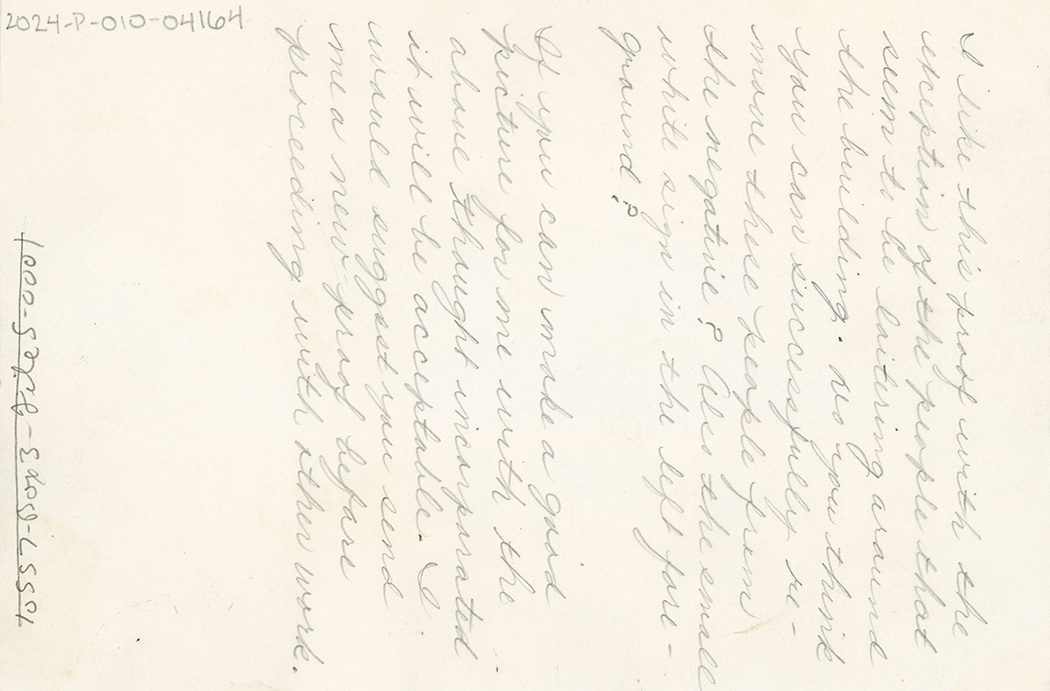 2024-P-010-04164
I like this proof with the
exception of the people that
seem to be loitering around
the building. Do you think
you can successfully re-
move these people from
the negative? Also the small
white sign in the left fore-
ground?
If you can make a good
picture for me with the
above thought incorporated
it will be acceptable. I
would suggest you send
me a new proof before
proceeding with other work.